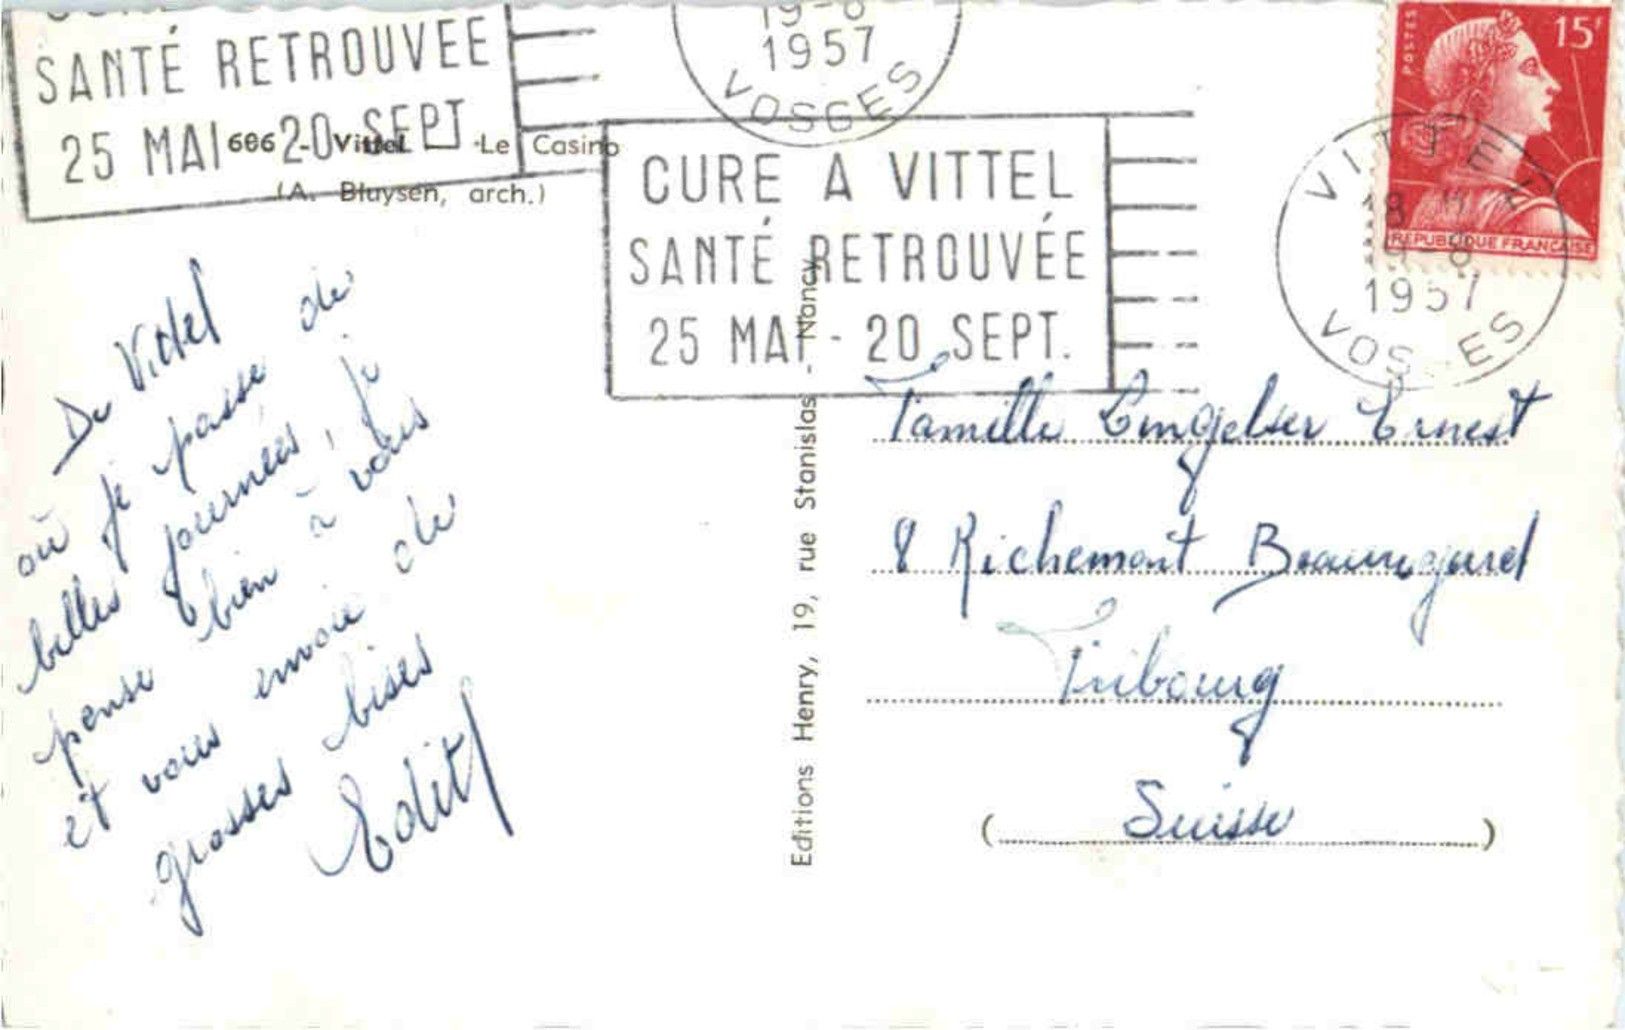 SANTÉ RETROUVEE
25 MAI 20 SEPT
606 - Vittel - Le Casino
(A. Bluysen, arch.)
19-8
1957
VOSGES
CURE A VITTEL
SANTÉ RETROUVÉE
25 MAI - 20 SEPT.
POSTES
15F
REPUBLIQUE FRANÇAISE
VITTEL
18 H
19-8
1957
VOSGES
De Vittel
où je passe de
belles journées, je
pense bien à vous
et vous envoie de
grosses bises
Edith
Editions Henry, 19, rue Stanislas - Nancy
Famille Lingelser Ernest
8 Richemont Beauregard
Fribourg
(Suisse)